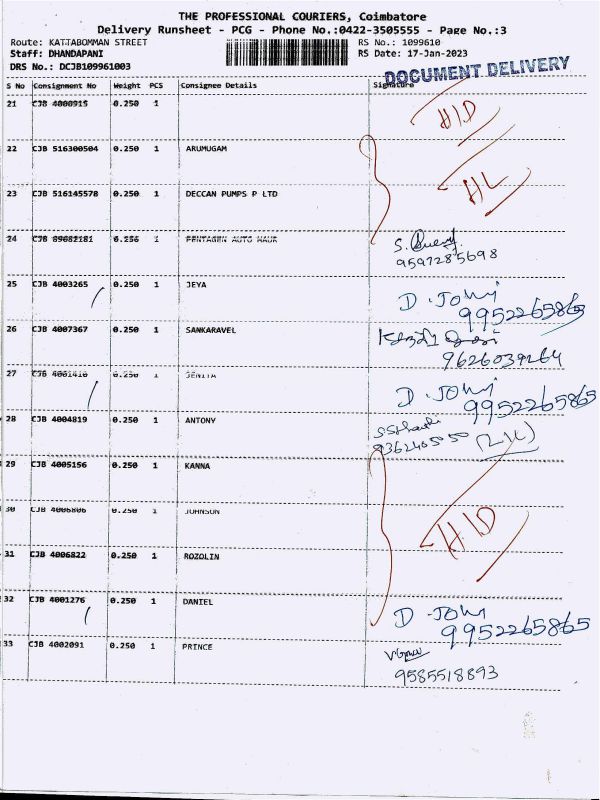 THE PROFESSIONAL COURIERS, Coimbatore
Delivery Runsheet - PCG - Phone No.:0422-3505555 - Page No.:3
Route: KATTABOMMAN STREET RS No.: 1099610
Staff: DHANDAPANI RS Date: 17-Jan-2023
DRS No.: DCJB109961003 DOCUMENT DELIVERY
S No Consignment No Weight PCS Consignee Details Signature
21 CJB 4000915 0.250 1
H/D
22 CJB 516300504 0.250 1 ARUMUGAM
23 CJB 516145578 0.250 1 DECCAN PUMPS P LTD
24 CJB 89682181 0.250 1 PENTAGEN AUTO HAUR
S.
9597285698
25 CJB 4003265 0.250 1 JEYA
D. Johi
9952265865
26 CJB 4007367 0.250 1 SANKARAVEL
9626039264
27 CJB 4001410 0.250 1 JENITA
D. Johi
9952265865
28 CJB 4004819 0.250 1 ANTONY
29 CJB 4005156 0.250 1 KANNA
30 CJB 4006806 0.250 1 JOHNSON
H/D
31 CJB 4006822 0.250 1 ROZOLIN
32 CJB 4001276 0.250 1 DANIEL
D. Johi
9952265865
33 CJB 4002091 0.250 1 PRINCE
9585518893